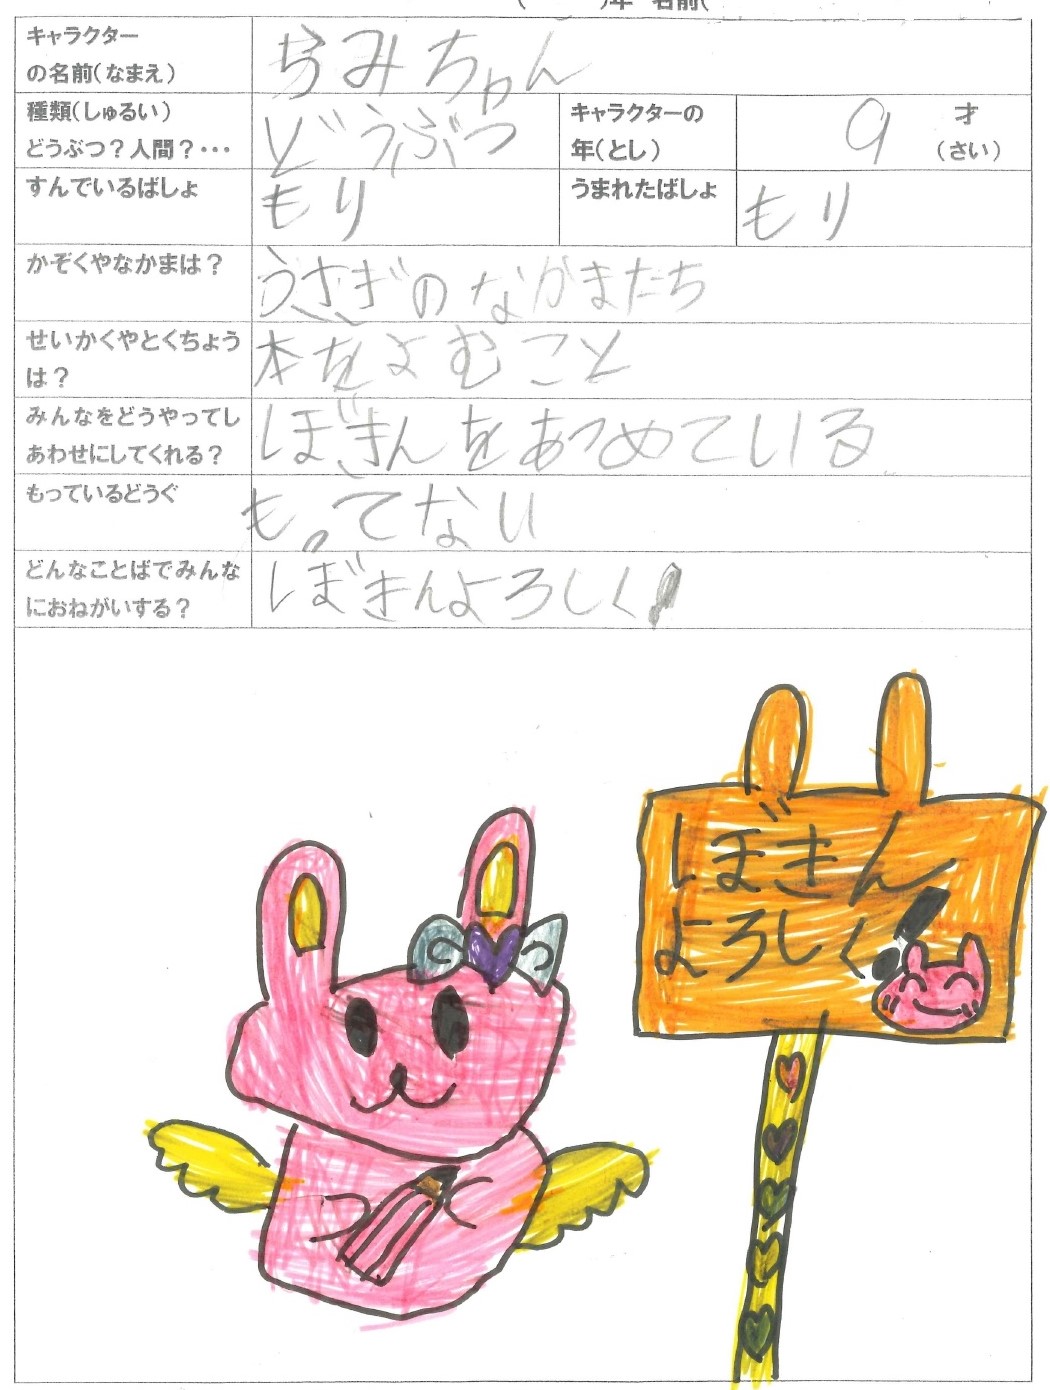 )年 名前(
キャラクター
の名前(なまえ)
らみちゃん
種類(しゅるい)
どうぶつ?人間?・・・
どうぶつ
キャラクターの
年(とし)
9
才
(さい)
すんでいるばしょ
もり
うまれたばしょ
もり
かぞくやなかまは?
うさぎのなかまたち
せいかくやとくちょう
は?
本をよむこと
みんなをどうやってし
あわせにしてくれる?
ぼきんをあつめている
もっているどうぐ
もってない
どんなことばでみんな
におねがいする?
ぼきんよろしく!
ぼきん
よろしく!